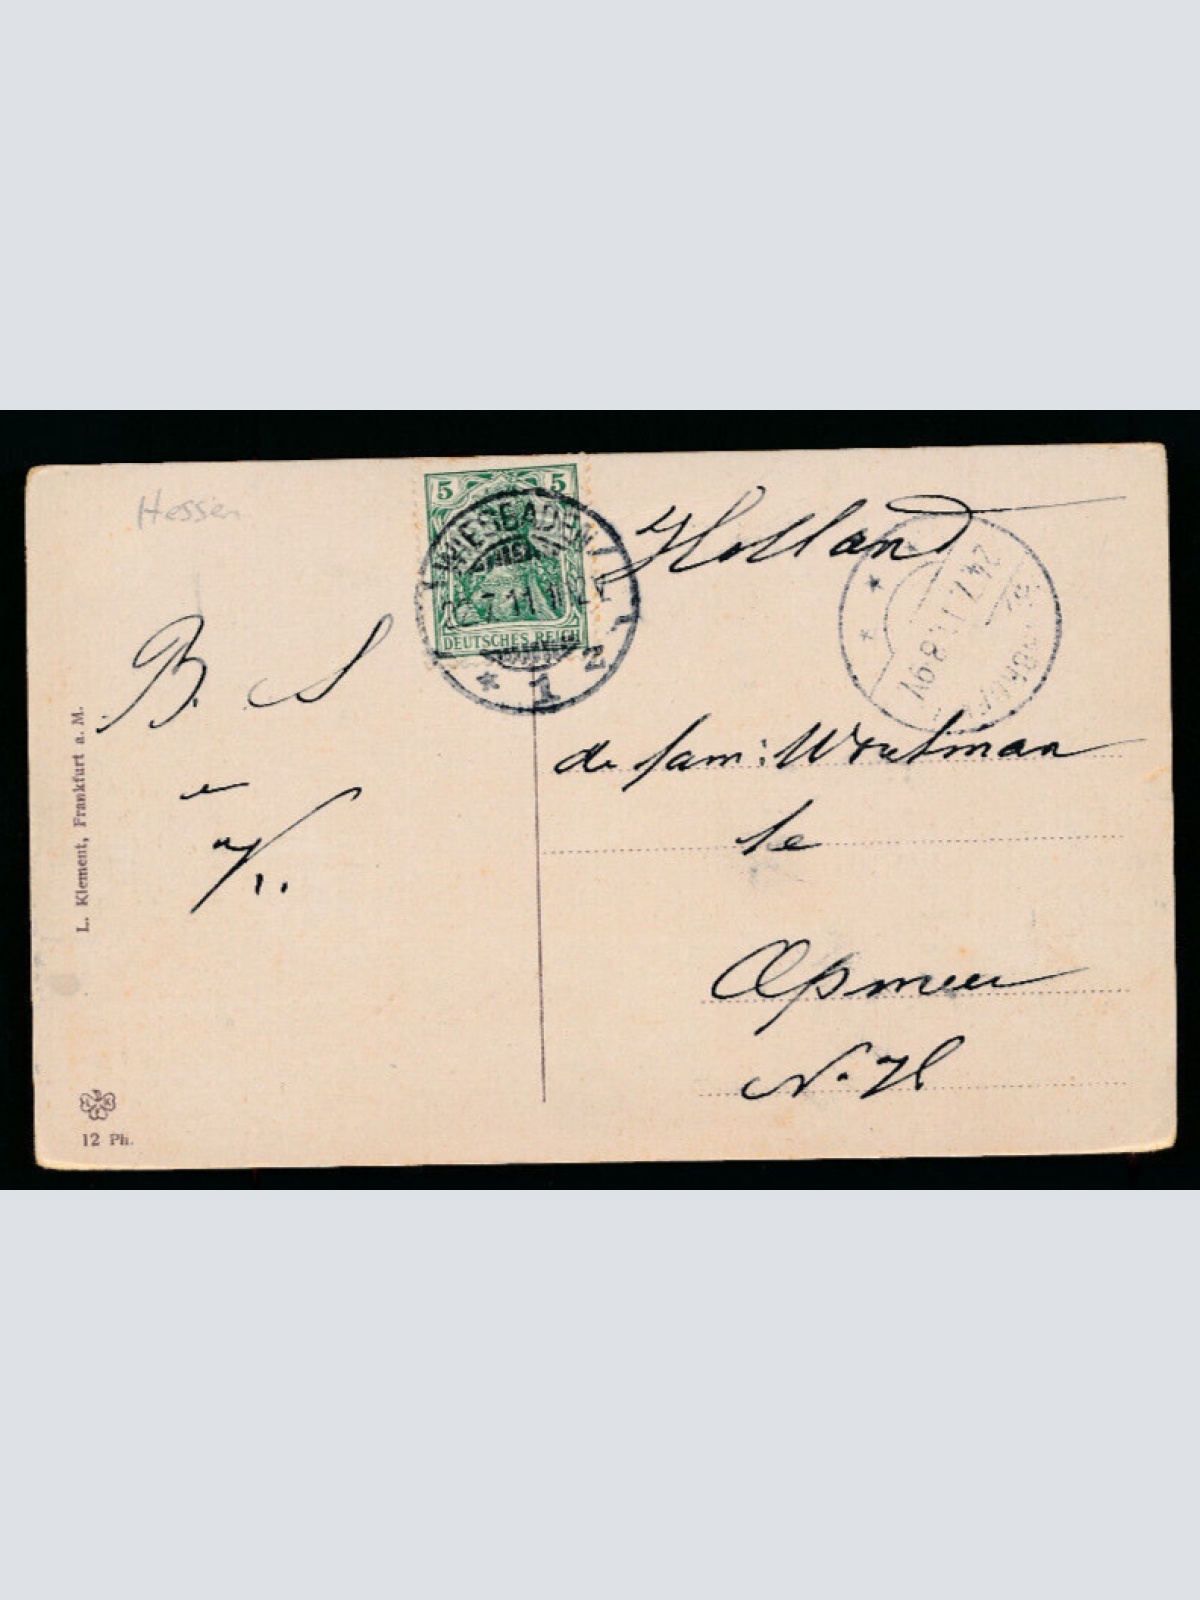 Hessen
5 5
DEUTSCHES REICH
WIESBADEN
22.7.11
* 1 z
Holland
24.7.11.8-9V
B. S
L. Klement, Frankfurt a. M.
de fam: Woutman
te
Opmeer
N. H
12 Ph.